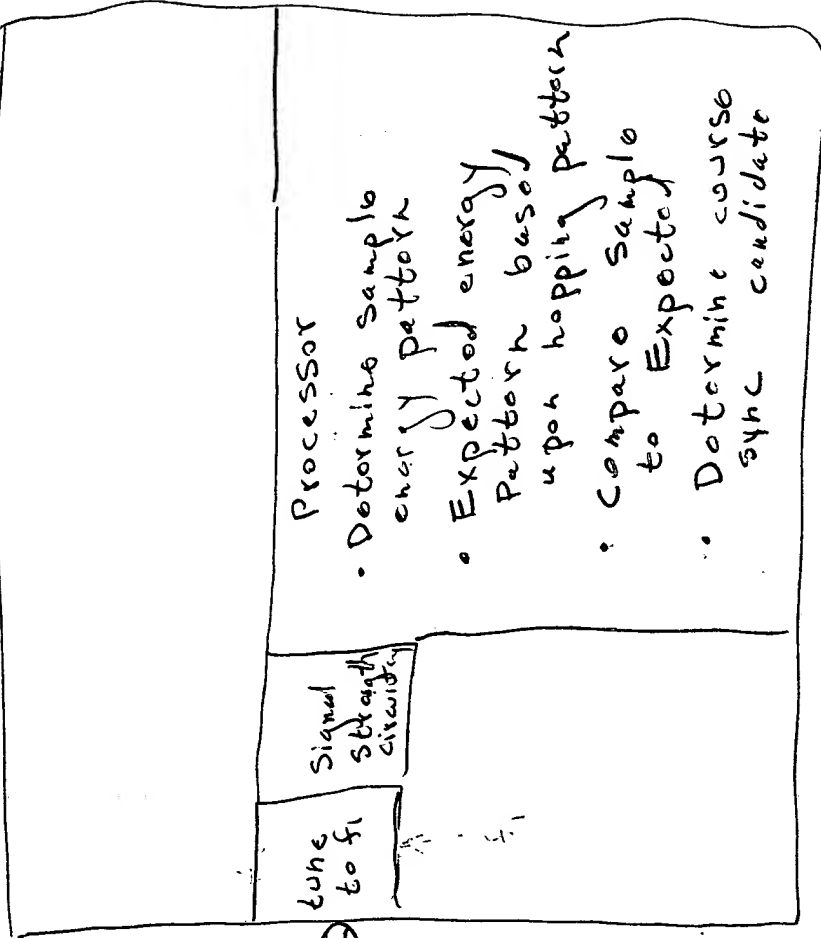 tune
to f1
Signal
Strength
circuitry
Processor
• Determine sample
energy pattern
• Expected energy
Pattern based
upon hopping pattern
• Compare Sample
to Expected
• Determine course
sync candidate